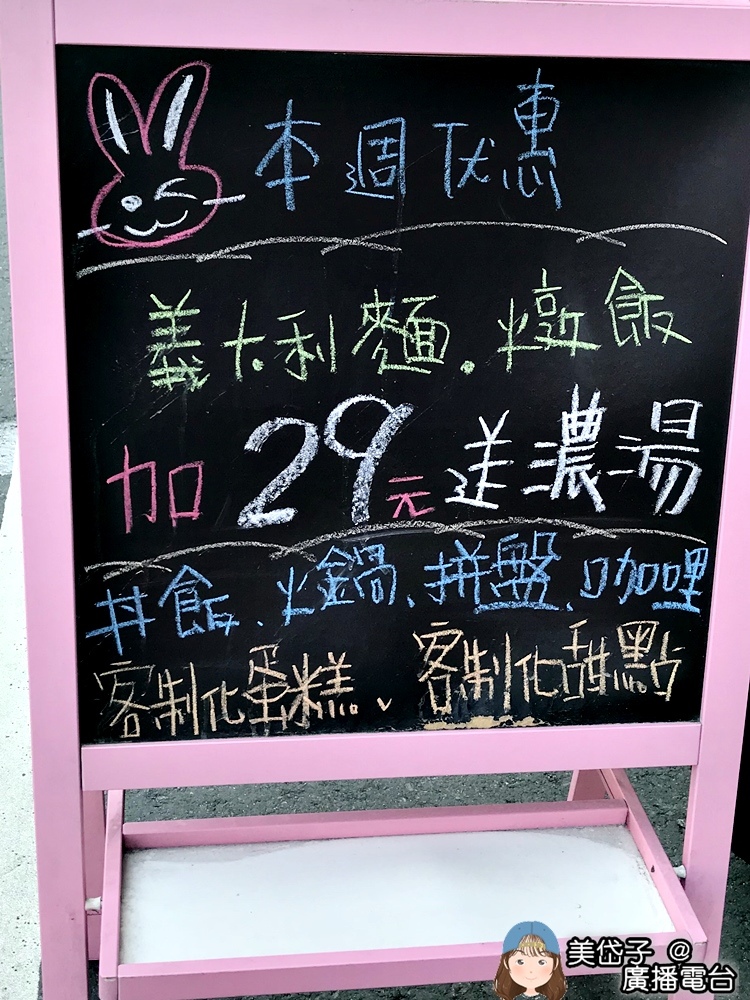 本週优惠
義大利麵.燉飯
加29元送濃湯
丼飯、火鍋、拼盤、咖哩
客制化蛋糕、客制化甜點
美岱子@
廣播電台